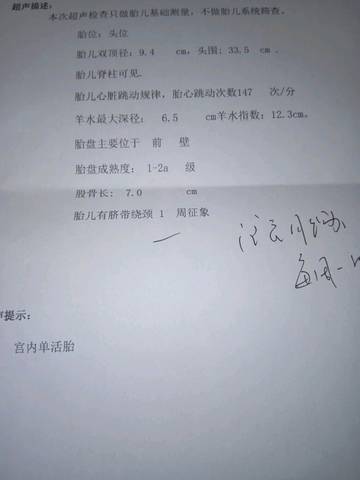 超声描述:
本次超声检查只做胎儿基础测量,不做胎儿系统筛查。
胎位:头位
胎儿双顶径:9.4 cm,头围:33.5 cm .
胎儿脊柱可见.
胎儿心脏跳动规律,胎心跳动次数147 次/分
羊水最大深径: 6.5 cm羊水指数:12.3cm。
胎盘主要位于 前 壁
胎盘成熟度:1-2a 级
股骨长: 7.0 cm
胎儿有脐带绕颈 1 周征象
每周一
声提示:
宫内单活胎